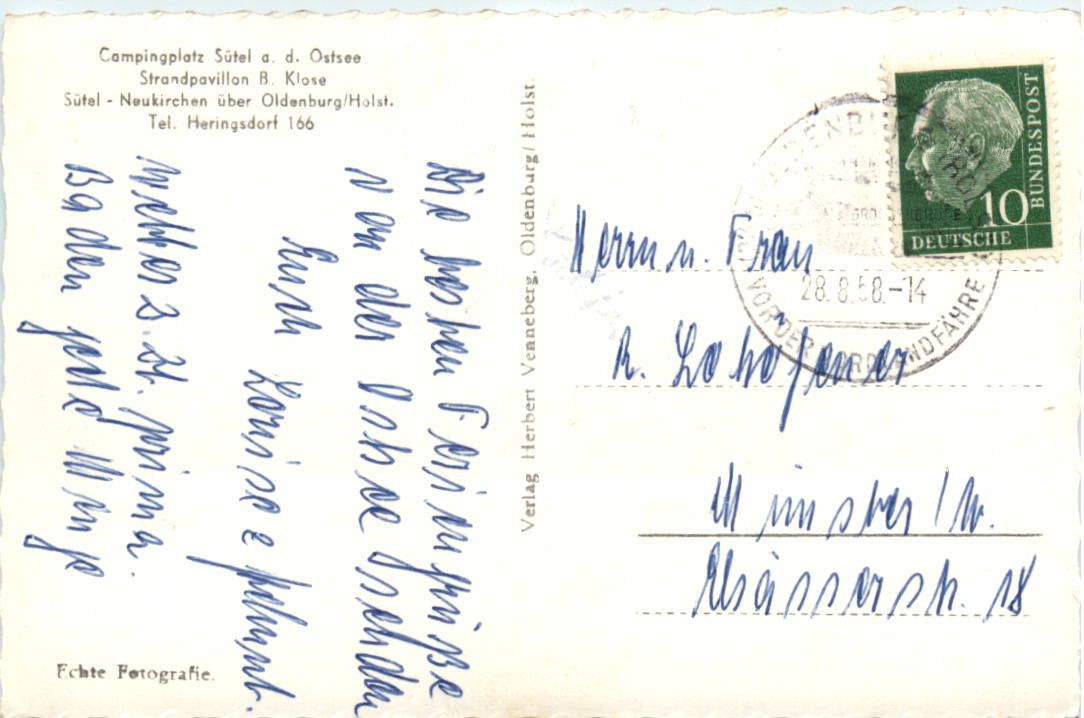 Campingplatz Sütel a. d. Ostsee
Strandpavillon B. Klose
Sütel - Neukirchen über Oldenburg/Holst.
Tel. Heringsdorf 166
Die besten Feriengrüße
von der Ostsee senden
Euch
Louise & Helmut.
Wetter z. Zt. prima.
Baden jede Menge
Echte Fotografie.
Verlag Herbert Venneberg, Oldenburg/Holst
DEUTSCHE BUNDESPOST
10
OLDENBURG
28.8.58.-14
VOR DER NORDLANDFÄHRE
Herrn u. Frau
R. Lohöfener
Münster / W.
Elsässerstr. 18